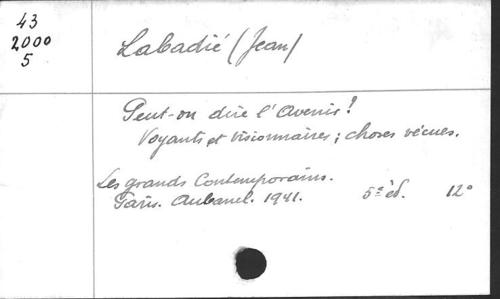 43
2000
5
Labadié (Jean)
Peut-on dire l'Avenir?
Voyants et visionnaires; choses vécues.
Les grands Contemporains.
Paris. Aubanel. 1941. 5e éd. 12°